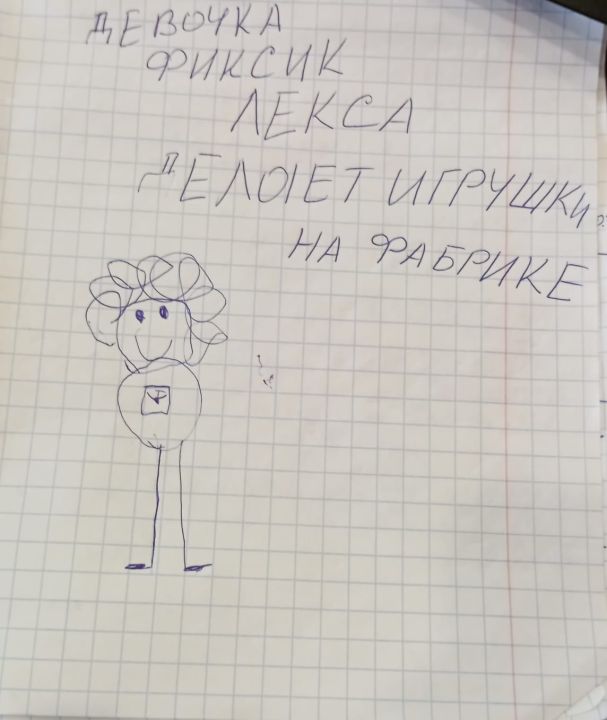 ДЕВОЧКА
ФИКСИК
ЛЕКСА
ДЕЛОІЕТ ИГРУШКИ
НА ФАБРИКЕ